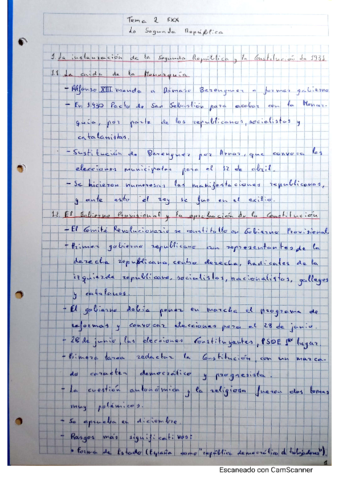 Tema 2 FXX
La Segunda República
1 La instauración de la Segunda República y la Constitución de 1931
1.1 La caída de la Monarquía
- Alfonso XIII manda a Dámaso Berenguer a formar gobierno
- En 1930 Pacto de San Sebastián para acabar con la Monar-
quía, por parte de los republicanos, socialistas y
catalanistas.
- Sustitución de Berenguer por Aznar, que convoca las
elecciones municipales para el 12 de abril.
- Se hicieron numerosas las manifestaciones republicanas,
y ante esto el rey se fue en el exilio.
1.2 El Gobierno Provisional y la aprobación de la Constitución
- El Comité Revolucionario se constituyó en Gobierno Provisional
- Primer gobierno republicano con representantes de la
derecha republicana, centro derecha, Radicales de la
izquierda republicana, socialistas, nacionalistas, gallegos
y catalanes.
- El gobierno debía poner en marcha el programa de
reformas y convocar elecciones para el 28 de junio.
- 28 de junio, las elecciones Constituyentes, PSOE 1º lugar.
- Primera tarea redactar la Constitución, con un marca-
do carácter democrático y progresista.
- La cuestión autonómica y la religiosa fueron dos temas
muy polémicos.
- Se aprueba en diciembre.
- Rasgos más significativos:
Forma de Estado (España como "república democrática de trabajadores").
Escaneado con CamScanner